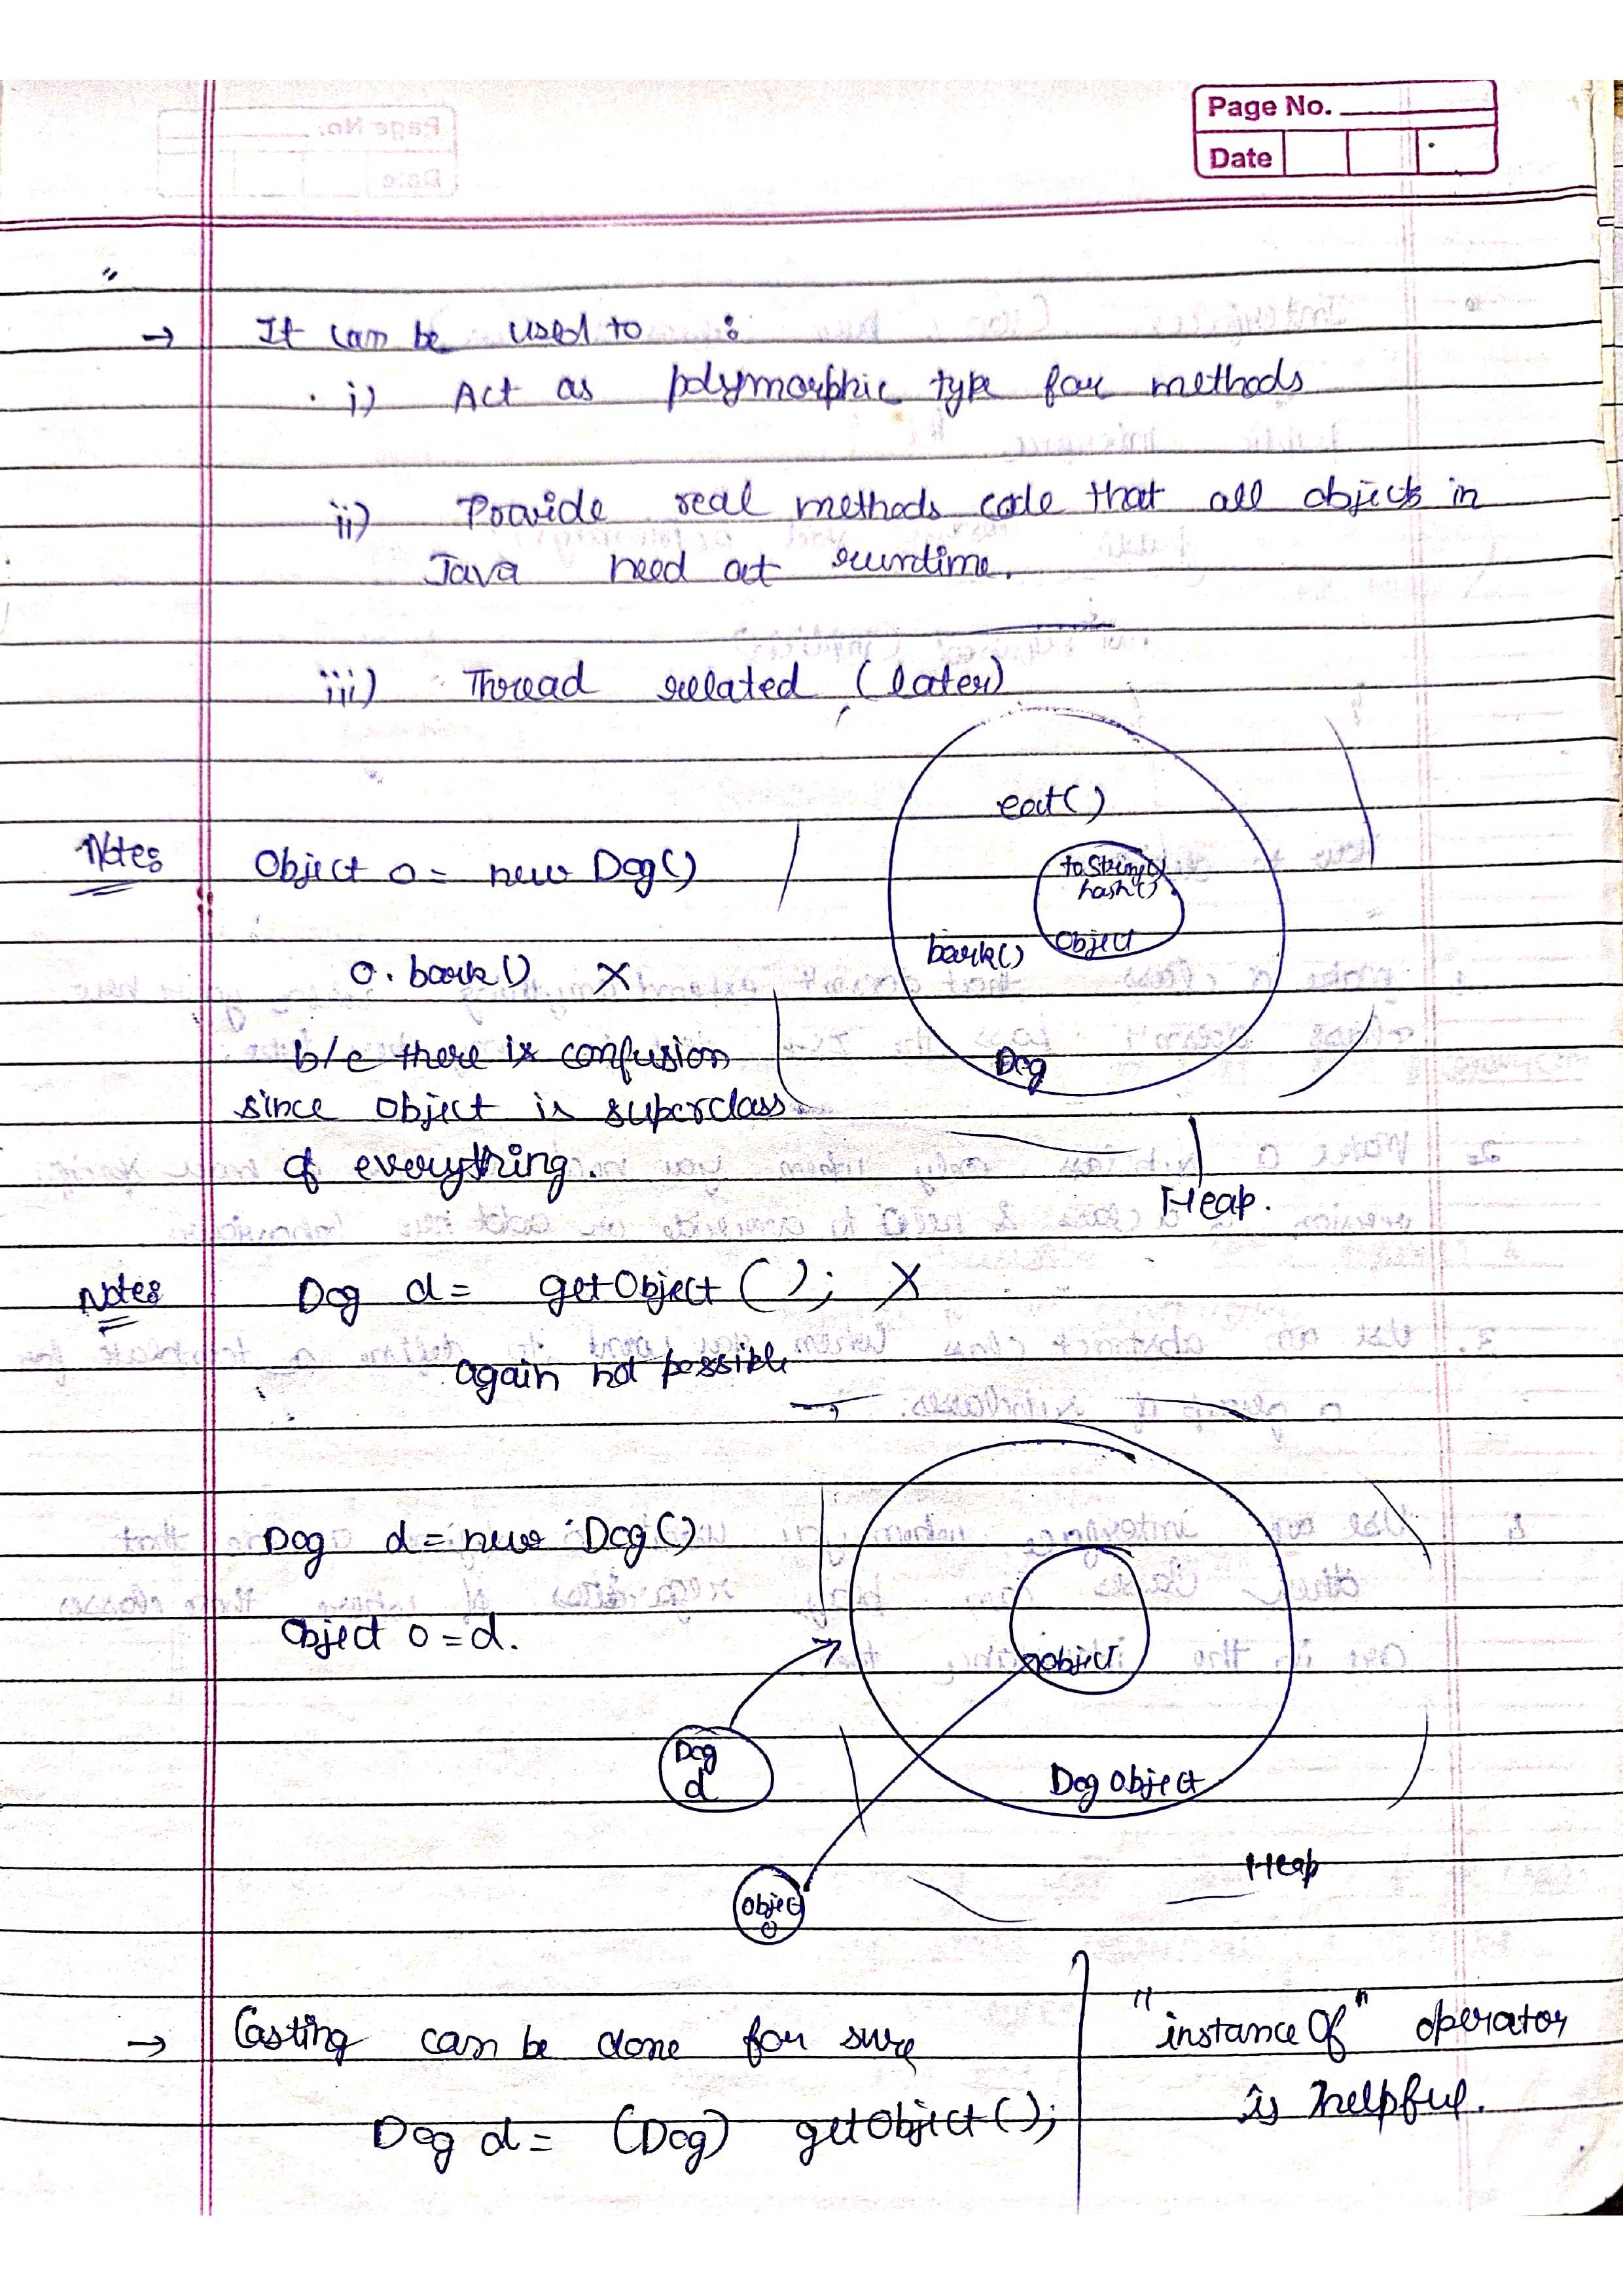 Page No.
Date
"
→ It can be used to :
i) Act as polymorphic type for methods
ii) Provide real methods code that all objects in
Java need at runtime.
iii) Thread related (later)
eat()
Notes Object o = new Dog()
toString()
hash()
Object
bark()
Dog
o. bark() X
b/c there is confusion
since object is superclass
of everything.
Heap.
Notes Dog d = getObject(); X
again not possible
Dog d = new Dog()
Object o = d.
object
Dog
d
Dog object
Heap
Object
o
→ Casting can be done for sure
Dog d = (Dog) getObject();
"instance Of" operator
is helpful.